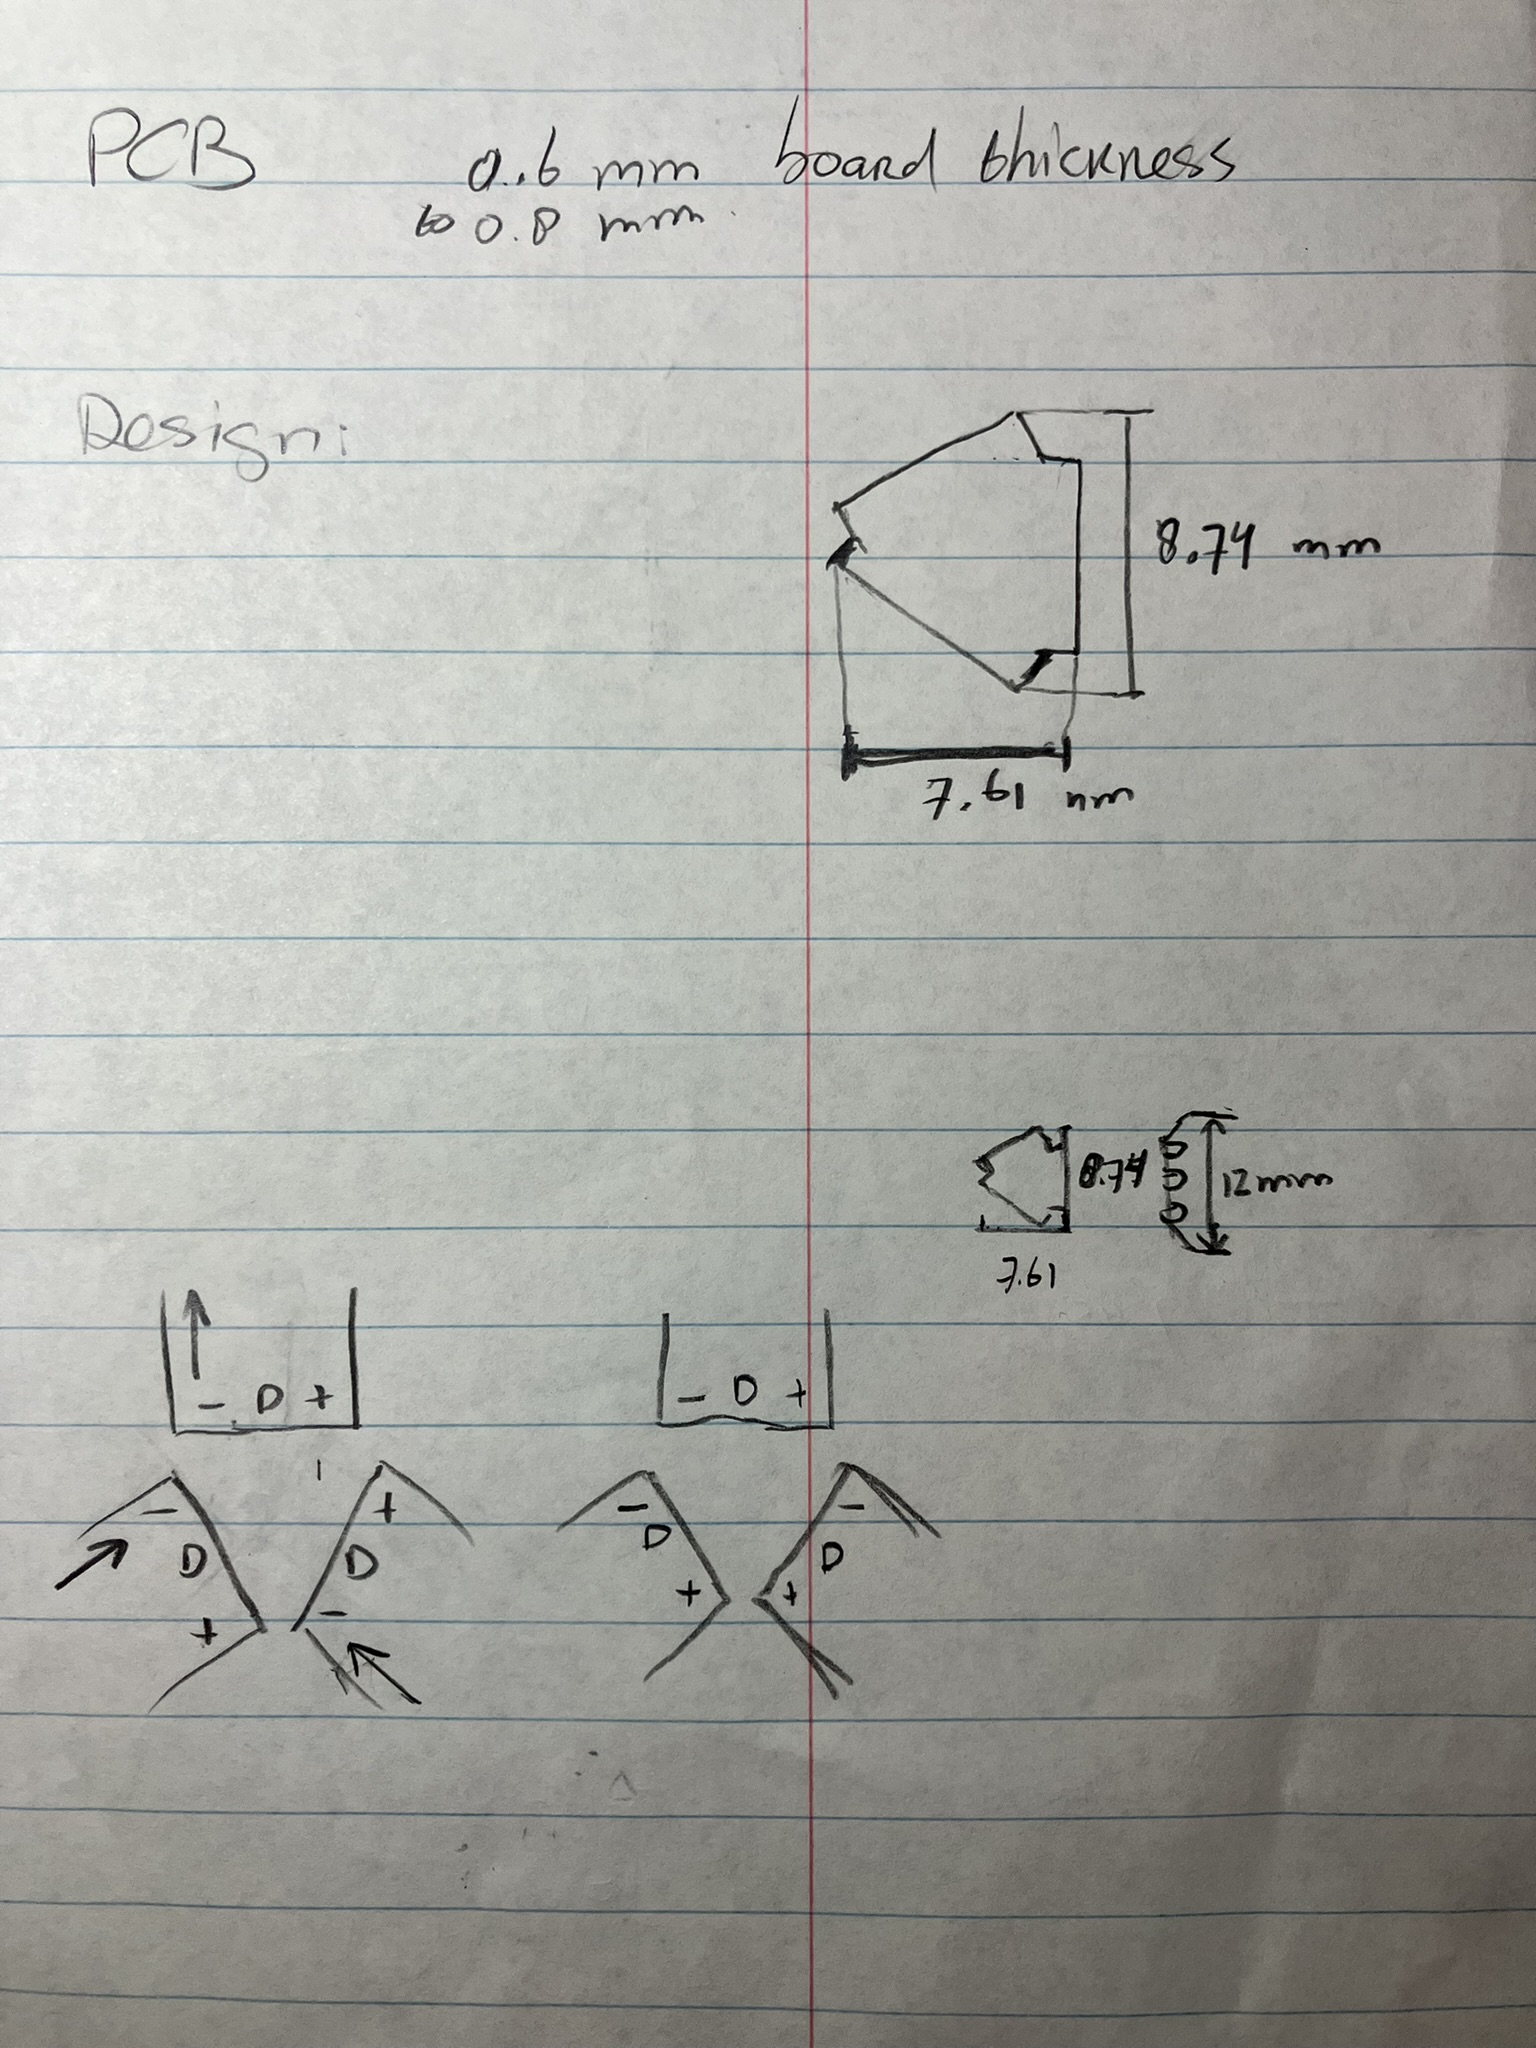 PCB 0.6 mm board thickness
to 0.8 mm
Design:
8.74 mm
7.61 mm
8.74 12mm
7.61
- D + - D +
- + - -
D D D D
+ - + +